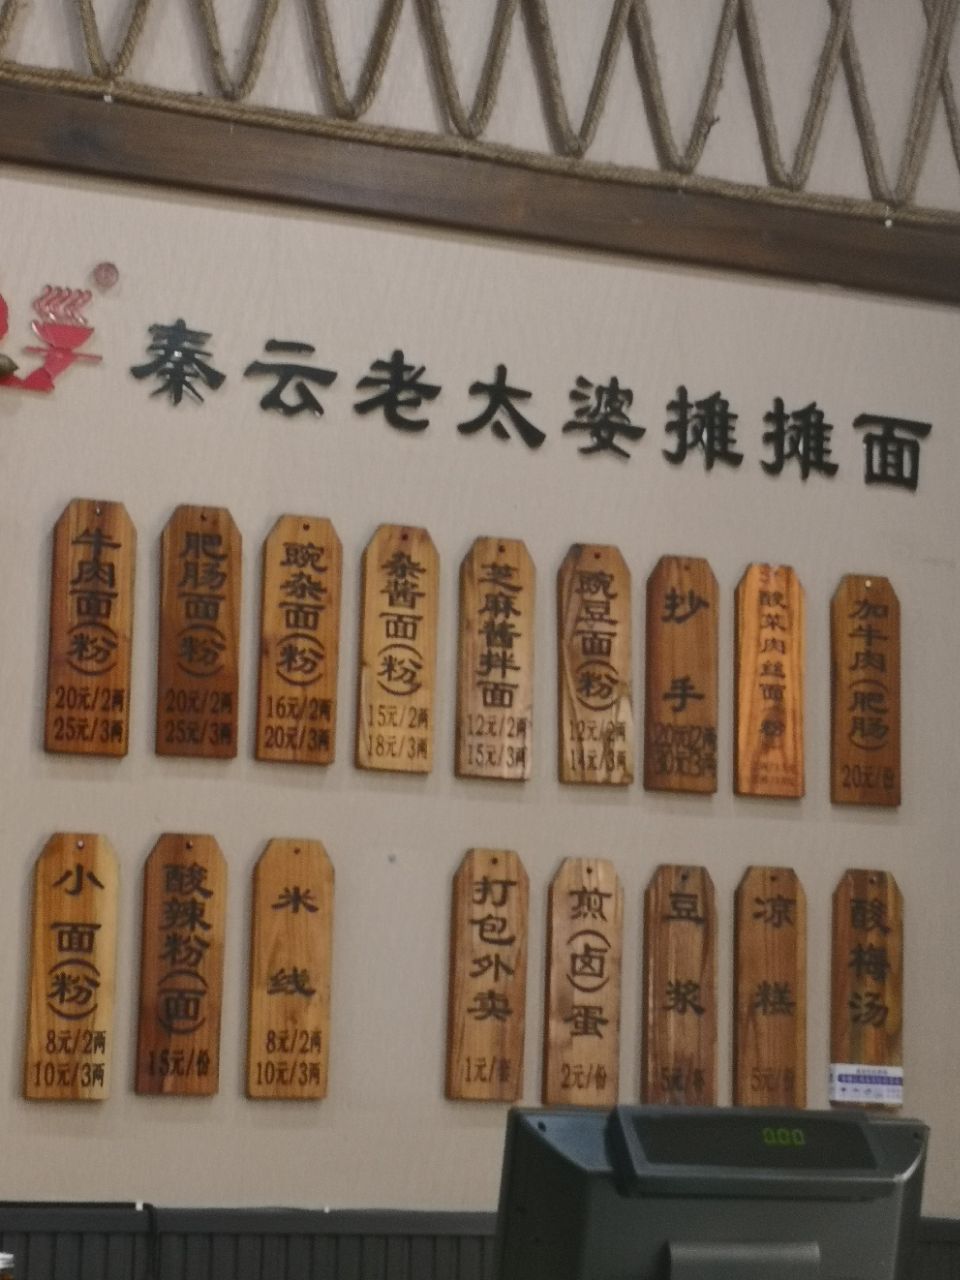 秦云老太婆摊摊面
牛肉面(粉)
20元/2两
25元/3两
肥肠面(粉)
20元/2两
25元/3两
豌杂面(粉)
16元/2两
20元/3两
杂酱面(粉)
15元/2两
18元/3两
芝麻酱拌面
12元/2两
15元/3两
豌豆面(粉)
12元/2两
14元/3两
抄手
20元/2两
30元/3两
酸菜肉丝面(粉)
加牛肉(肥肠)
20元/份
小面(粉)
8元/2两
10元/3两
酸辣粉(面)
15元/份
米线
8元/2两
10元/3两
打包外卖
1元/套
煎(卤)蛋
2元/份
豆浆
5元/杯
凉糕
5元/
酸梅汤
0.00